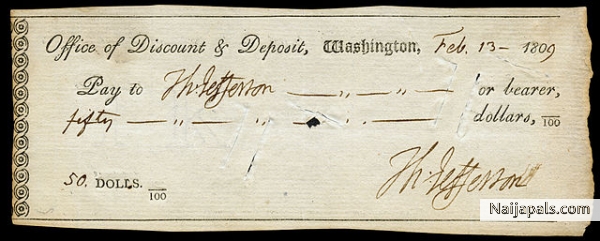 Office of Discount & Deposit, Washington, Feb. 13 - 1809
Pay to Th: Jefferson — „ — „ — or bearer,
fifty — „ — „ — „ — dollars, /100
50. DOLLS. /100
Th: Jefferson
Naijapals.com